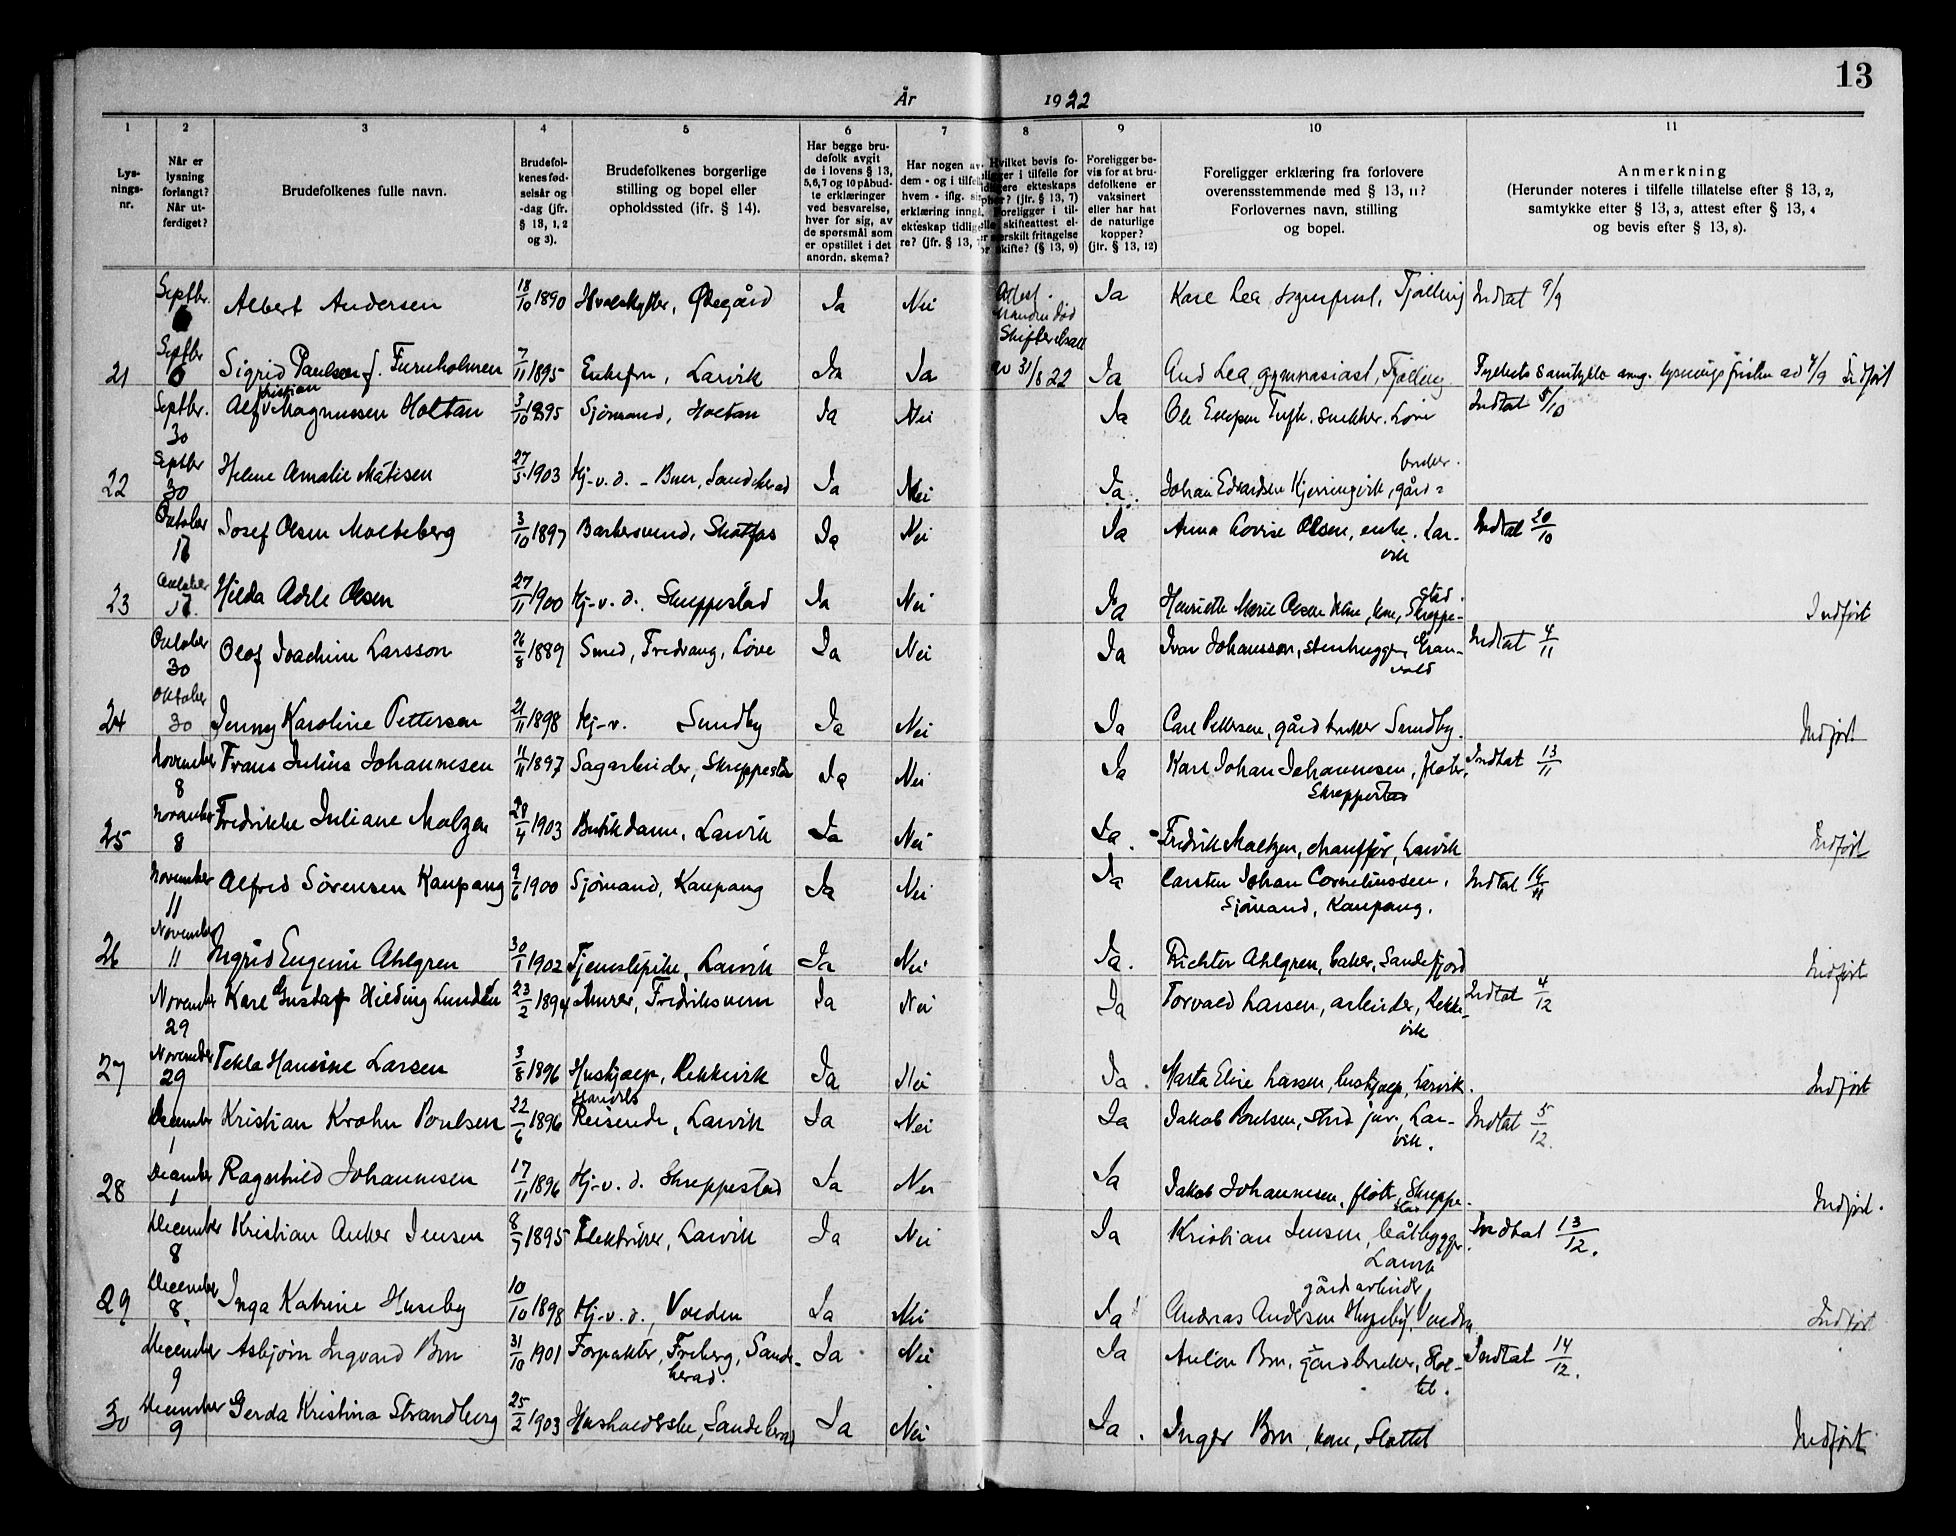 13
År 1922
1 2 3 4 5 6 7 8 9 10 11
Lys-
nings-
nr.
Når er
lysning
forlangt?
Når ut-
ferdiget?
Brudefolkenes fulle navn.
Brudefol-
kenes fød-
selsår og
-dag (jfr.
§ 13, 1, 2
og 3).
Brudefolkenes borgerlige
stilling og bopel eller
opholdssted (jfr. § 14).
Har begge bru-
defolk avgit
de i lovens § 13,
5, 6, 7 og 10 påbud-
te erklæringer
ved besvarelse,
hver for sig, av
de spørsmål som
er opstillet i det
anordn. skema?
Har nogen av
dem - og i tilfelle
hvem - iflg.
erklæring inngå
ekteskap tidlige-
re? (jfr. § 13,
Hvilket bevis fo-
religger i tilfelle for
tidligere ekteskaps
ophør? (jfr. § 13, 7)
Foreligger i til-
felle skifteattest el-
ler særskilt fritagelse
for skifte? (§ 13, 9)
Foreligger be-
vis for at bru-
defolkene er
vaksinert
eller har hat
de naturlige
kopper?
(jfr. § 13, 12)
Foreligger erklæring fra forlovere
overensstemmende med § 13, 11?
Forlovernes navn, stilling
og bopel.
Anmerkning
(Herunder noteres i tilfelle tillatelse efter § 13, 2,
samtykke efter § 13, 3, attest efter § 13, 4
og bevis efter § 13, 8).
Septbr. Albert Andersen 18/10 1890 Hvalskytter, Ja Nei Attest. Ja Kåre Lea Fjælling Indtat 9/9
Manden død
21 Septbr 6 Sigrid Paulsen f. Furuholmen 7/11 1895 Enkefru, Larvik Ja Ja av 31/8 22 Ja Aud Lea, gymnasiast, Fjælling lysningsfristen ad 7/9 Indført
Septbr. 30 Alf Kristian Magnussen Holtan 3/10 1895 Sjømand, Holtan Ja Nei Ja Ole snekker. Indtat 5/10
22 Septbr 30 Helene Amalie Matisen 27/5 1903 Hj-v. d. - Buer, Sandeherad Ja Nei Ja. Johan Edvardsen Kjerringvik, gård=
bruker.
Oktober 17 Josef Olsen Molteberg 3/10 1897 Barbersvend, Skotfos Ja Nei Ja Anna Lovise Olsen, enke. Lar-
vik Indtat 20/10
23 Oktober 17. Hilda Adele Olsen 27/11 1900 Hj-v. d. Skreppestad Ja Nei Ja Henriette Marie Olsen kone, Skreppe-
stad. Indført
Oktober 30 Olof Joachim Larsson 26/8 1889 Smed, Fredvang, Løve Ja Nei Ja Ivar Johansson, stenhugger Gran-
vold Indtat 4/11
24 Oktober 30 Jenny Karoline Pettersen 21/11 1898 Hj-v. Sundby Ja Nei Ja Carl Pettersen, gårdbruker Sundby. Indført
November 8 Frans Julius Johannesen 11/11 1897 Sagarbeider, Skreppestad Ja Nei Ja Karl Johan Johannesen, fløter,
Skreppestad Indtat 13/11
25 November 8 Fredrikke Juliane Molzen 28/4 1903 Butikdame, Larvik Ja Nei Ja. Fredrik Moltzen, chauffør, Larvik Indført
November 11 Alfred Sørensen Kaupang 9/6 1900 Sjømand, Kaupang Ja Nei Ja Carsten Johan Corneliussen,
Sjømand, Kaupang. Indtat 16/11
26 November 11 Ingrid Eugenie Ahlgren 30/1 1902 Tjenestepike, Larvik Ja Nei Ja. Richter Ahlgren, baker, Sandefjord Indført
November 29 Karl Gustaf Hilding Lundén 23/2 1894 Murer, Fredriksvern Ja Nei Ja Torvald Larsen, arbeider, Rekke-
vik Indtat 4/12
27 November 29 Tekla Hansine Larsen 3/8 1896 Hushjælp, Rekkevik Ja Nei Ja. Marta Elise Larsen, hushjælp, Larvik. Indført
December 1 Kristian Krohn Poulsen 22/6 1896 Handels
Reisende, Larvik Ja Nei Ja Jakob Poulsen, stud jur. Lar-
vik. Indtat 5/12.
28 December 1 Ragnhild Johannesen 17/11 1896 Hj-v. d. Skreppestad Ja Nei Ja Jakob Johannesen, fløter, Skreppe-
stad Indført.
December 8 Kristian Anker Jensen 8/7 1895 Elektriker, Larvik Ja Nei Ja Kristian Jensen, båtbygger
Larvik Indtat 13/12.
29 December 8. Inga Katrine Huseby 10/10 1898 Hj-v. d., Volden Ja Nei Ja gårdarbeider
Andreas Andersen Huseby, Indført
December 9 Asbjørn Ingvard Brn 31/10 1901 Forpakter, Freberg, Sande-
herad. Ja Nei Ja Anton Brn, gårdbruker, Slot-
tet. Indtat 14/12.
30 December 9 Gerda Kristina Strandberg 25/2 1903 Husholderske, Sandeherad Ja Nei Ja. Inger Brn, kone, Slottet Indført